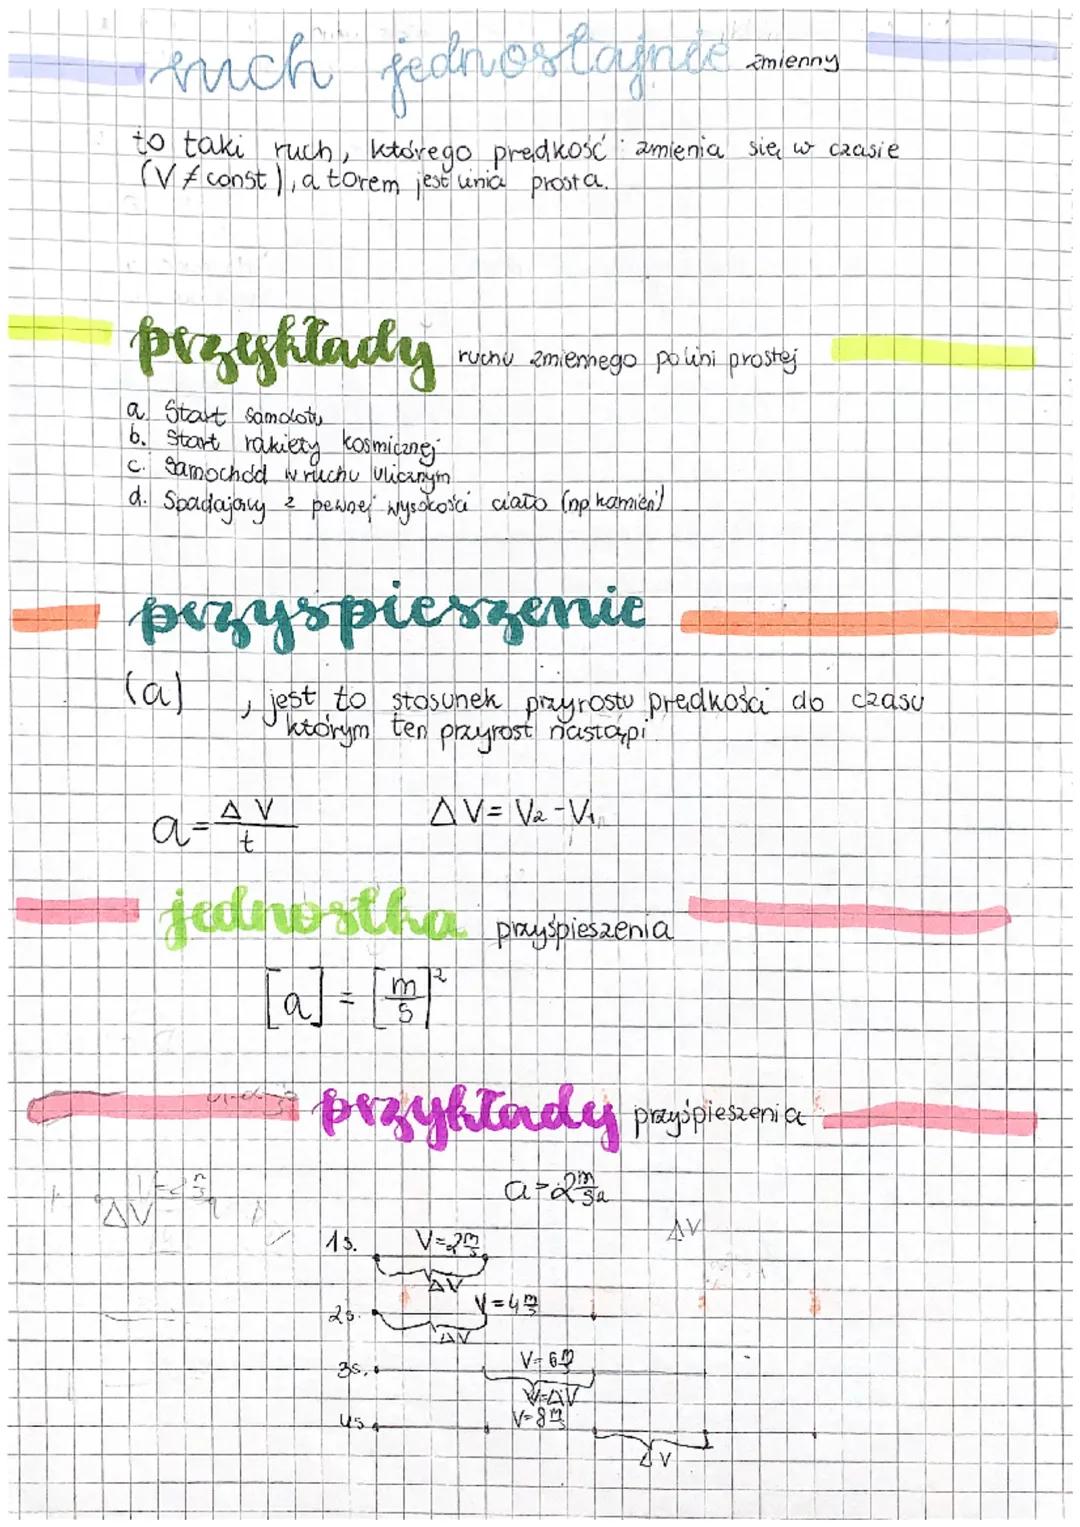 ruch jednostajnie zmienny
to taki ruch, którego prędkość zmienia się w czasie
(V ≠ const), a torem jest linia prosta.
przykłady ruchu zmiennego po lini prostej
a. Start samolotu
b. Start rakiety kosmicznej
c. Samochód w ruchu ulicznym
d. Spadający z pewnej wysokości ciało (np kamień)
przyspieszenie
(a) , jest to stosunek przyrostu prędkości do czasu
którym ten przyrost nastąpi.
a = ΔV / t
ΔV = V₂ - V₁
jednostka przyśpieszenia
[a] = [m/s]²
przykłady przyśpieszenia
a = 2 m/s²
ΔV
ΔV
1s. V = 2 m/s
ΔV
2s. V = 4 m/s
ΔV
3s. V = 6 m/s
V = ΔV
4s V = 8 m/s
ΔV